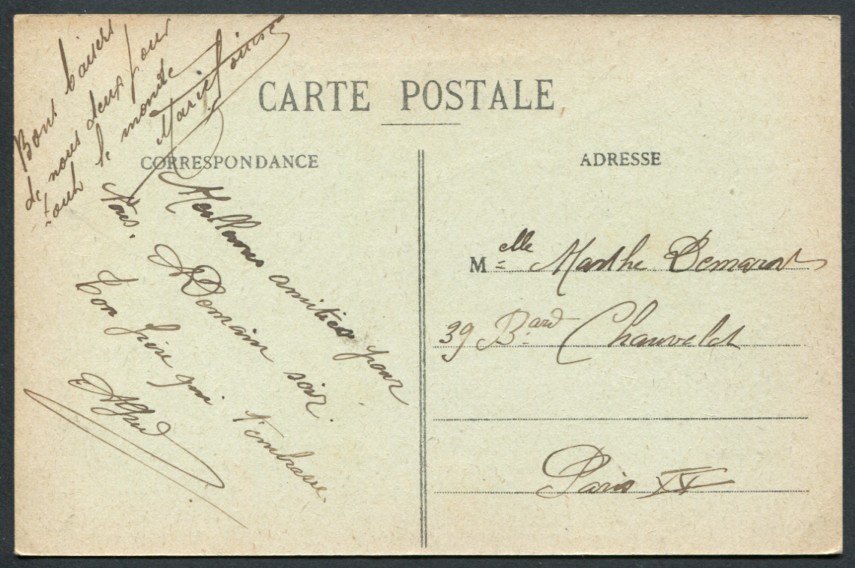 CARTE POSTALE
CORRESPONDANCE
ADRESSE
Bons baisers
de nous deux pour
tout le monde
Marie Louise
Meilleures amitiés pour
tous.
A Demain soir.
Ton frère qui t'embrasse.
Melle Marthe Demarot
39 Bard Chauvelot
Paris XV